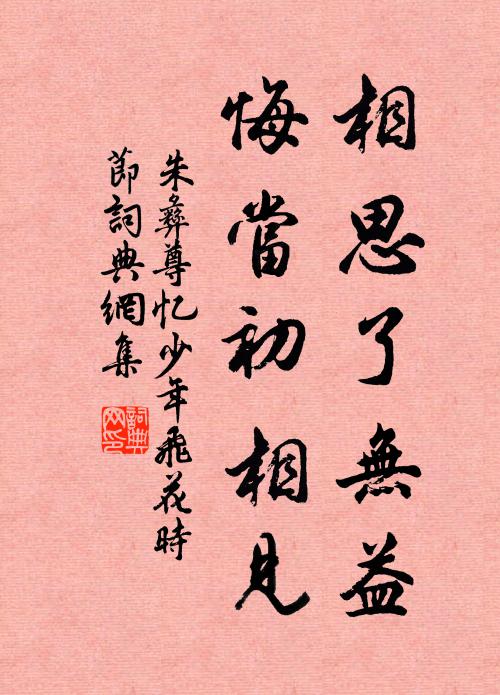 相思了無益
悔當初相見
朱彝尊忆少年飛花時
節詞典網集
詞典
网印